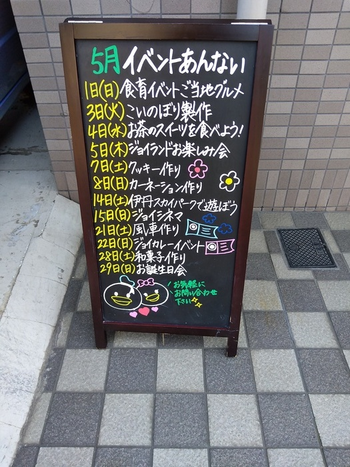 5月イベントあんない
1日(日)食育イベントご当地グルメ
3日(火)こいのぼり製作
4日(水)お茶のスイーツを食べよう!
5日(木)ジョイランドお楽しみ会
7日(土)クッキー作り
8日(日)カーネーション作り
14日(土)伊丹スカイパークで遊ぼう
15日(日)ジョイシネマ
21日(土)風車作り
22日(日)ジョイカレーイベント
28日(土)和菓子作り
29日(日)お誕生日会
お気軽に
お問い合わせ
下さい